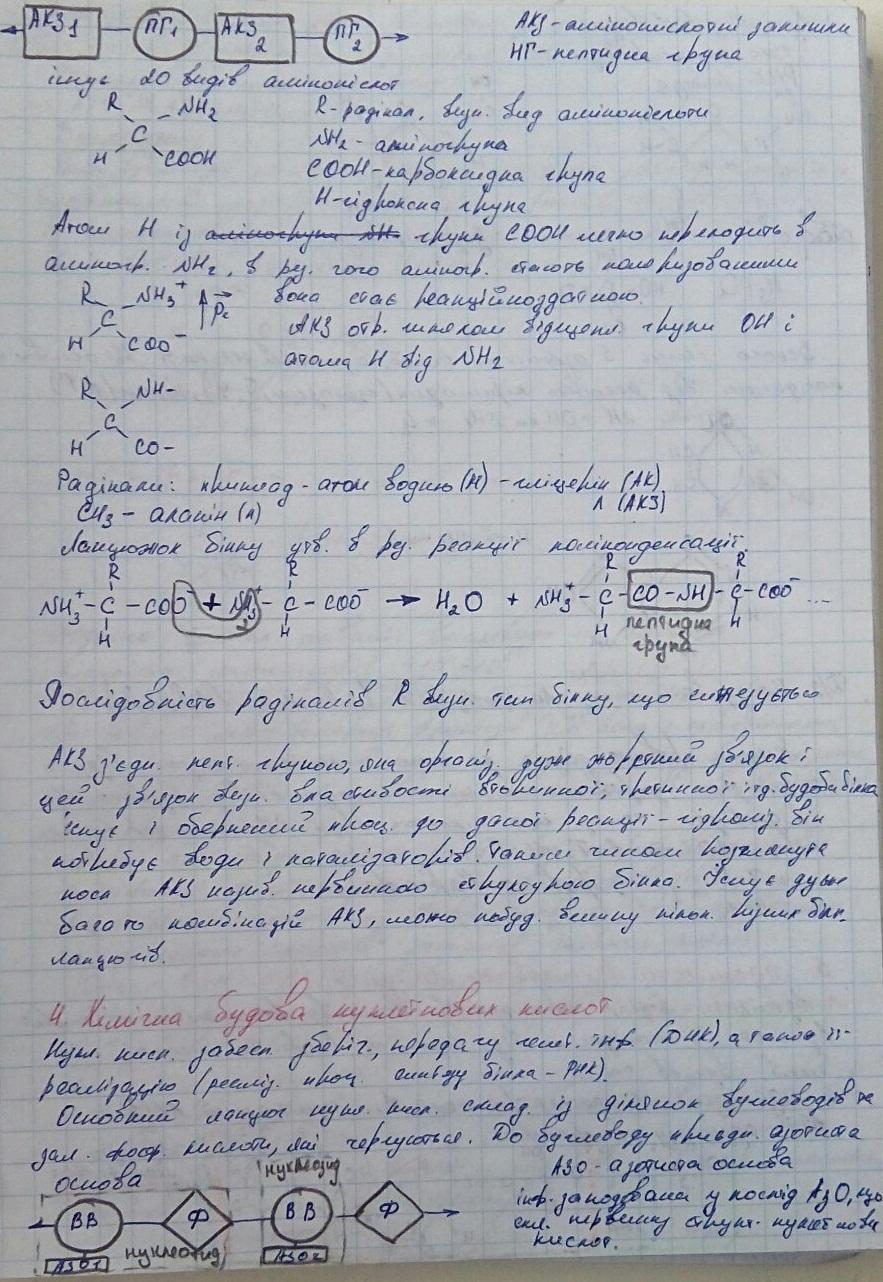 АКЗ1 ПГ1 АКЗ2 ПГ2 АКЗ-амінокислотні залишки
ПГ-пептидна група
існує 20 видів амінокислот
R NH2 R-радікал, визн. вид амінокислоти
C NH2-аміногрупа
H COOH COOH-карбоксидна група
H-гідроксна група
Атом H із аміногрупи NH групи COOH легко переходить в
аміногр. NH2, в рез. чого аміногр. стають поляризованими
R NH3+ Pe вона стає реакційноздатною.
C АКЗ отр. шляхом відщепл. групи OH і
H COO- атома H від NH2
R NH-
C
H CO-
Радікали: приклад-атом водню (H) -гліцерін (АК)
CH3 - аланін (А) Л (АКЗ)
Ланцюжок білку утв. в рез. реакції поліконденсації.
R R R R
NH3+-C-COO- + NH3+-C-COO- → H2O + NH3+-C-CO-NH-C-COO- ...
H H H пептидна H
група
Послідовність радікалів R визн. тип білку, що синтезується
АКЗ з'єдн. пепт. групою, яка організ. дуже жорсткий зв'язок і
цей зв'язок визн. властивості вторинної, третинної ітд. будови білка
існує і обернений проц. до даної реакції-гідроліз. він
потребує води і каталізаторів. Таким чином розглянута
посл АКЗ назив. первинною структурою білка. Існує дуже
багато комбінацій АКЗ, можо побуд. велику кільк. різних білк.
ланцюгів.
4. Хімічна будова нуклеїнових кислот
Нукл. кисл. забезп. зберіг., передачу генет. інф. (ДНК), а також її
реалізацію (реаліз. проц. синтезу білка-РНК).
Основний ланцюг нукл. кисл. склад. із ділянок вуглеводів та
зал. фосф. кислоти, які чергуються. До вуглеводу приєдн. азотиста
основа нуклеозид АЗО-азотиста основа
ВВ Ф ВВ Ф інф. закодована у послід АзО, що
АЗО1 нуклеотид АЗО2 скл. первинну структ. нуклеїнови
кислот.